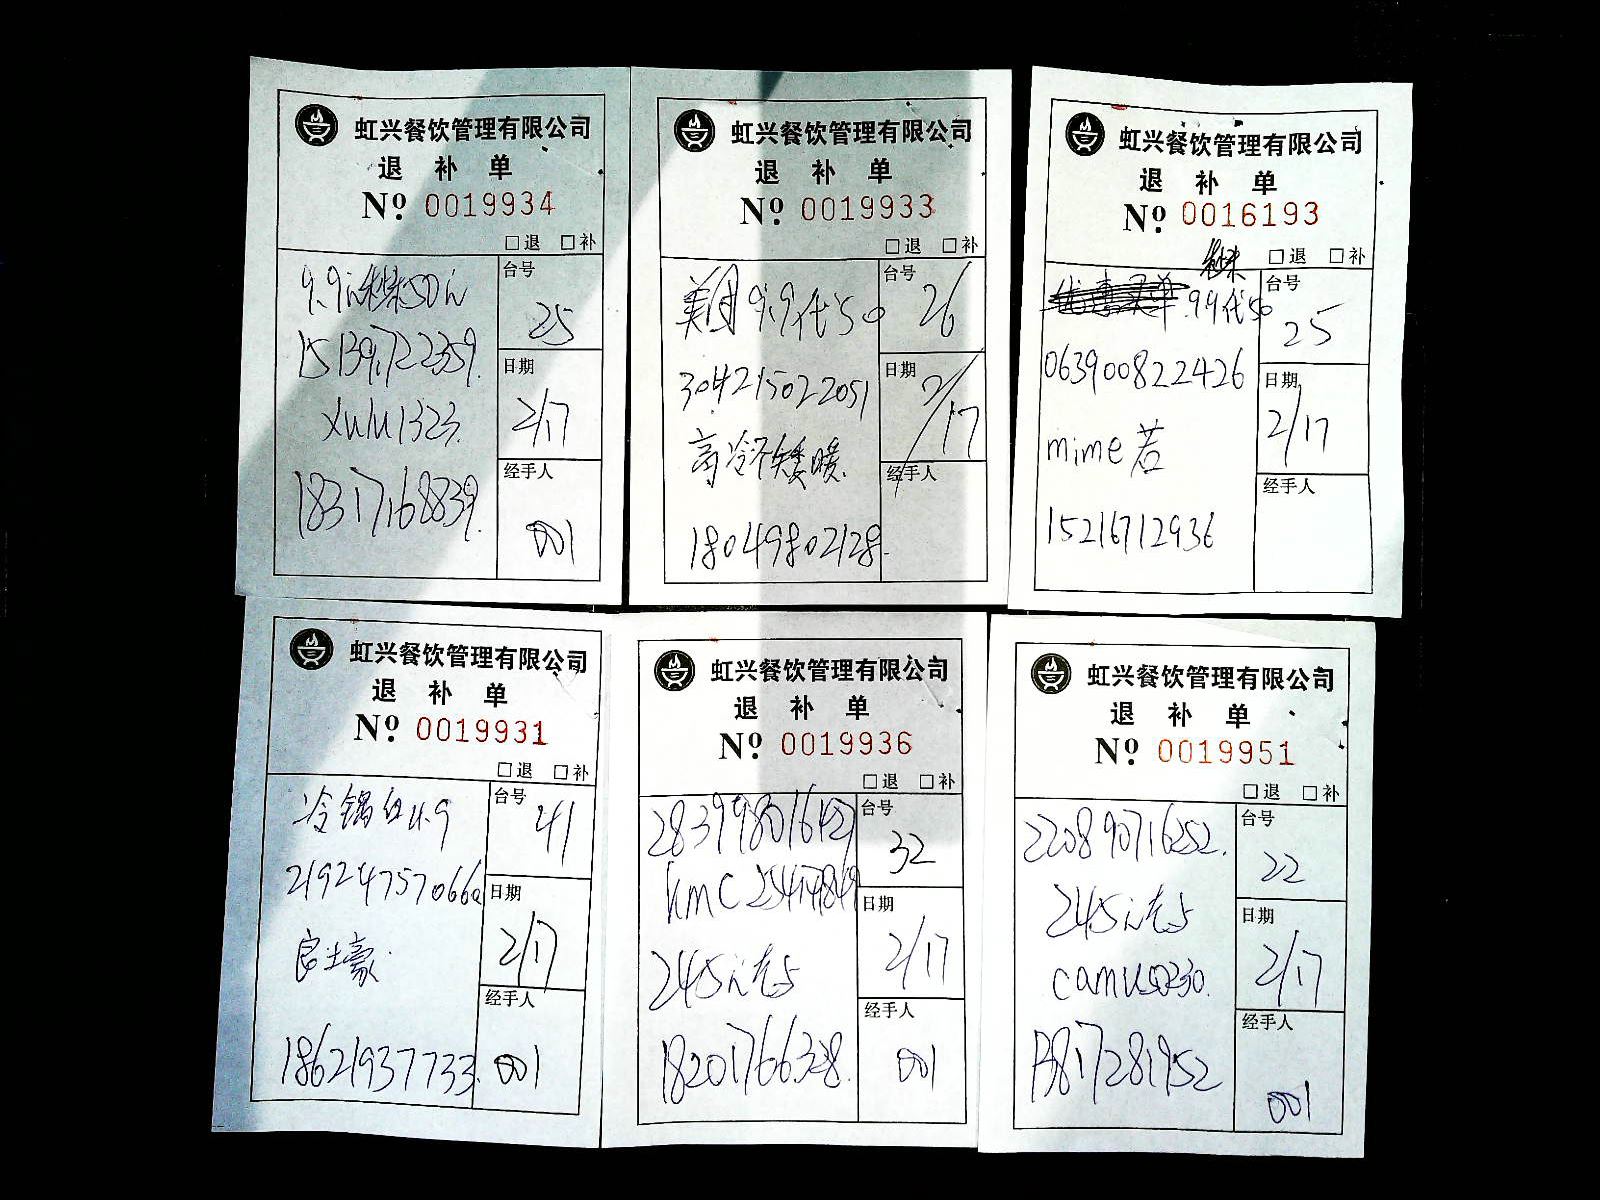 虹兴餐饮管理有限公司
退 补 单
Nº 0019934
□退 □补
9.9元秒杀50元
台号
25
151391722359.
日期
2/17
xulu1323.
经手人
18317168839.
001
虹兴餐饮管理有限公司
退 补 单
Nº 0019933
□退 □补
美团9.9代50
台号
26
304215022051
日期
2/17
高冷不矮暖.
经手人
18049802128.
虹兴餐饮管理有限公司
退 补 单
Nº 0016193
□退 □补
9.9代50
台号
25
063900822426
日期
2/17
mime若
经手人
15216712936
虹兴餐饮管理有限公司
退 补 单
Nº 0019931
□退 □补
冷锅鱼4.9
台号
41
日期
2/17
良土豪.
经手人
18621937733.
001
虹兴餐饮管理有限公司
退 补 单
Nº 0019936
□退 □补
台号
32
kmc
日期
2/17
245元
经手人
18201766328.
001
虹兴餐饮管理有限公司
退 补 单
Nº 0019951
□退 □补
220890716252.
台号
22
245元
日期
2/17
经手人
13817281952
001